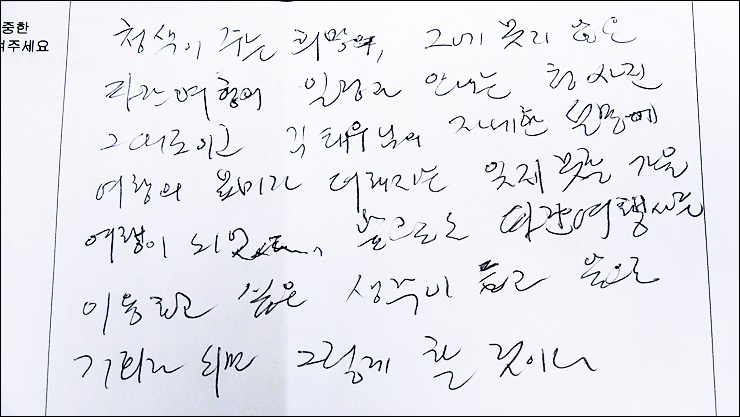 중한
겨주세요
청색이 주는 희망의, 그네
파란여행의 일정과 안내는 청사진
그 여로이고 김태우님의 자세한 설명에
여행의 묘미가 더해지는 잊지 못할 가을
여행이 되었 앞으로도 파란여행사를
이용하고 싶은 생각이 들고 앞으로
기회가 되면 그렇게 할 것이니